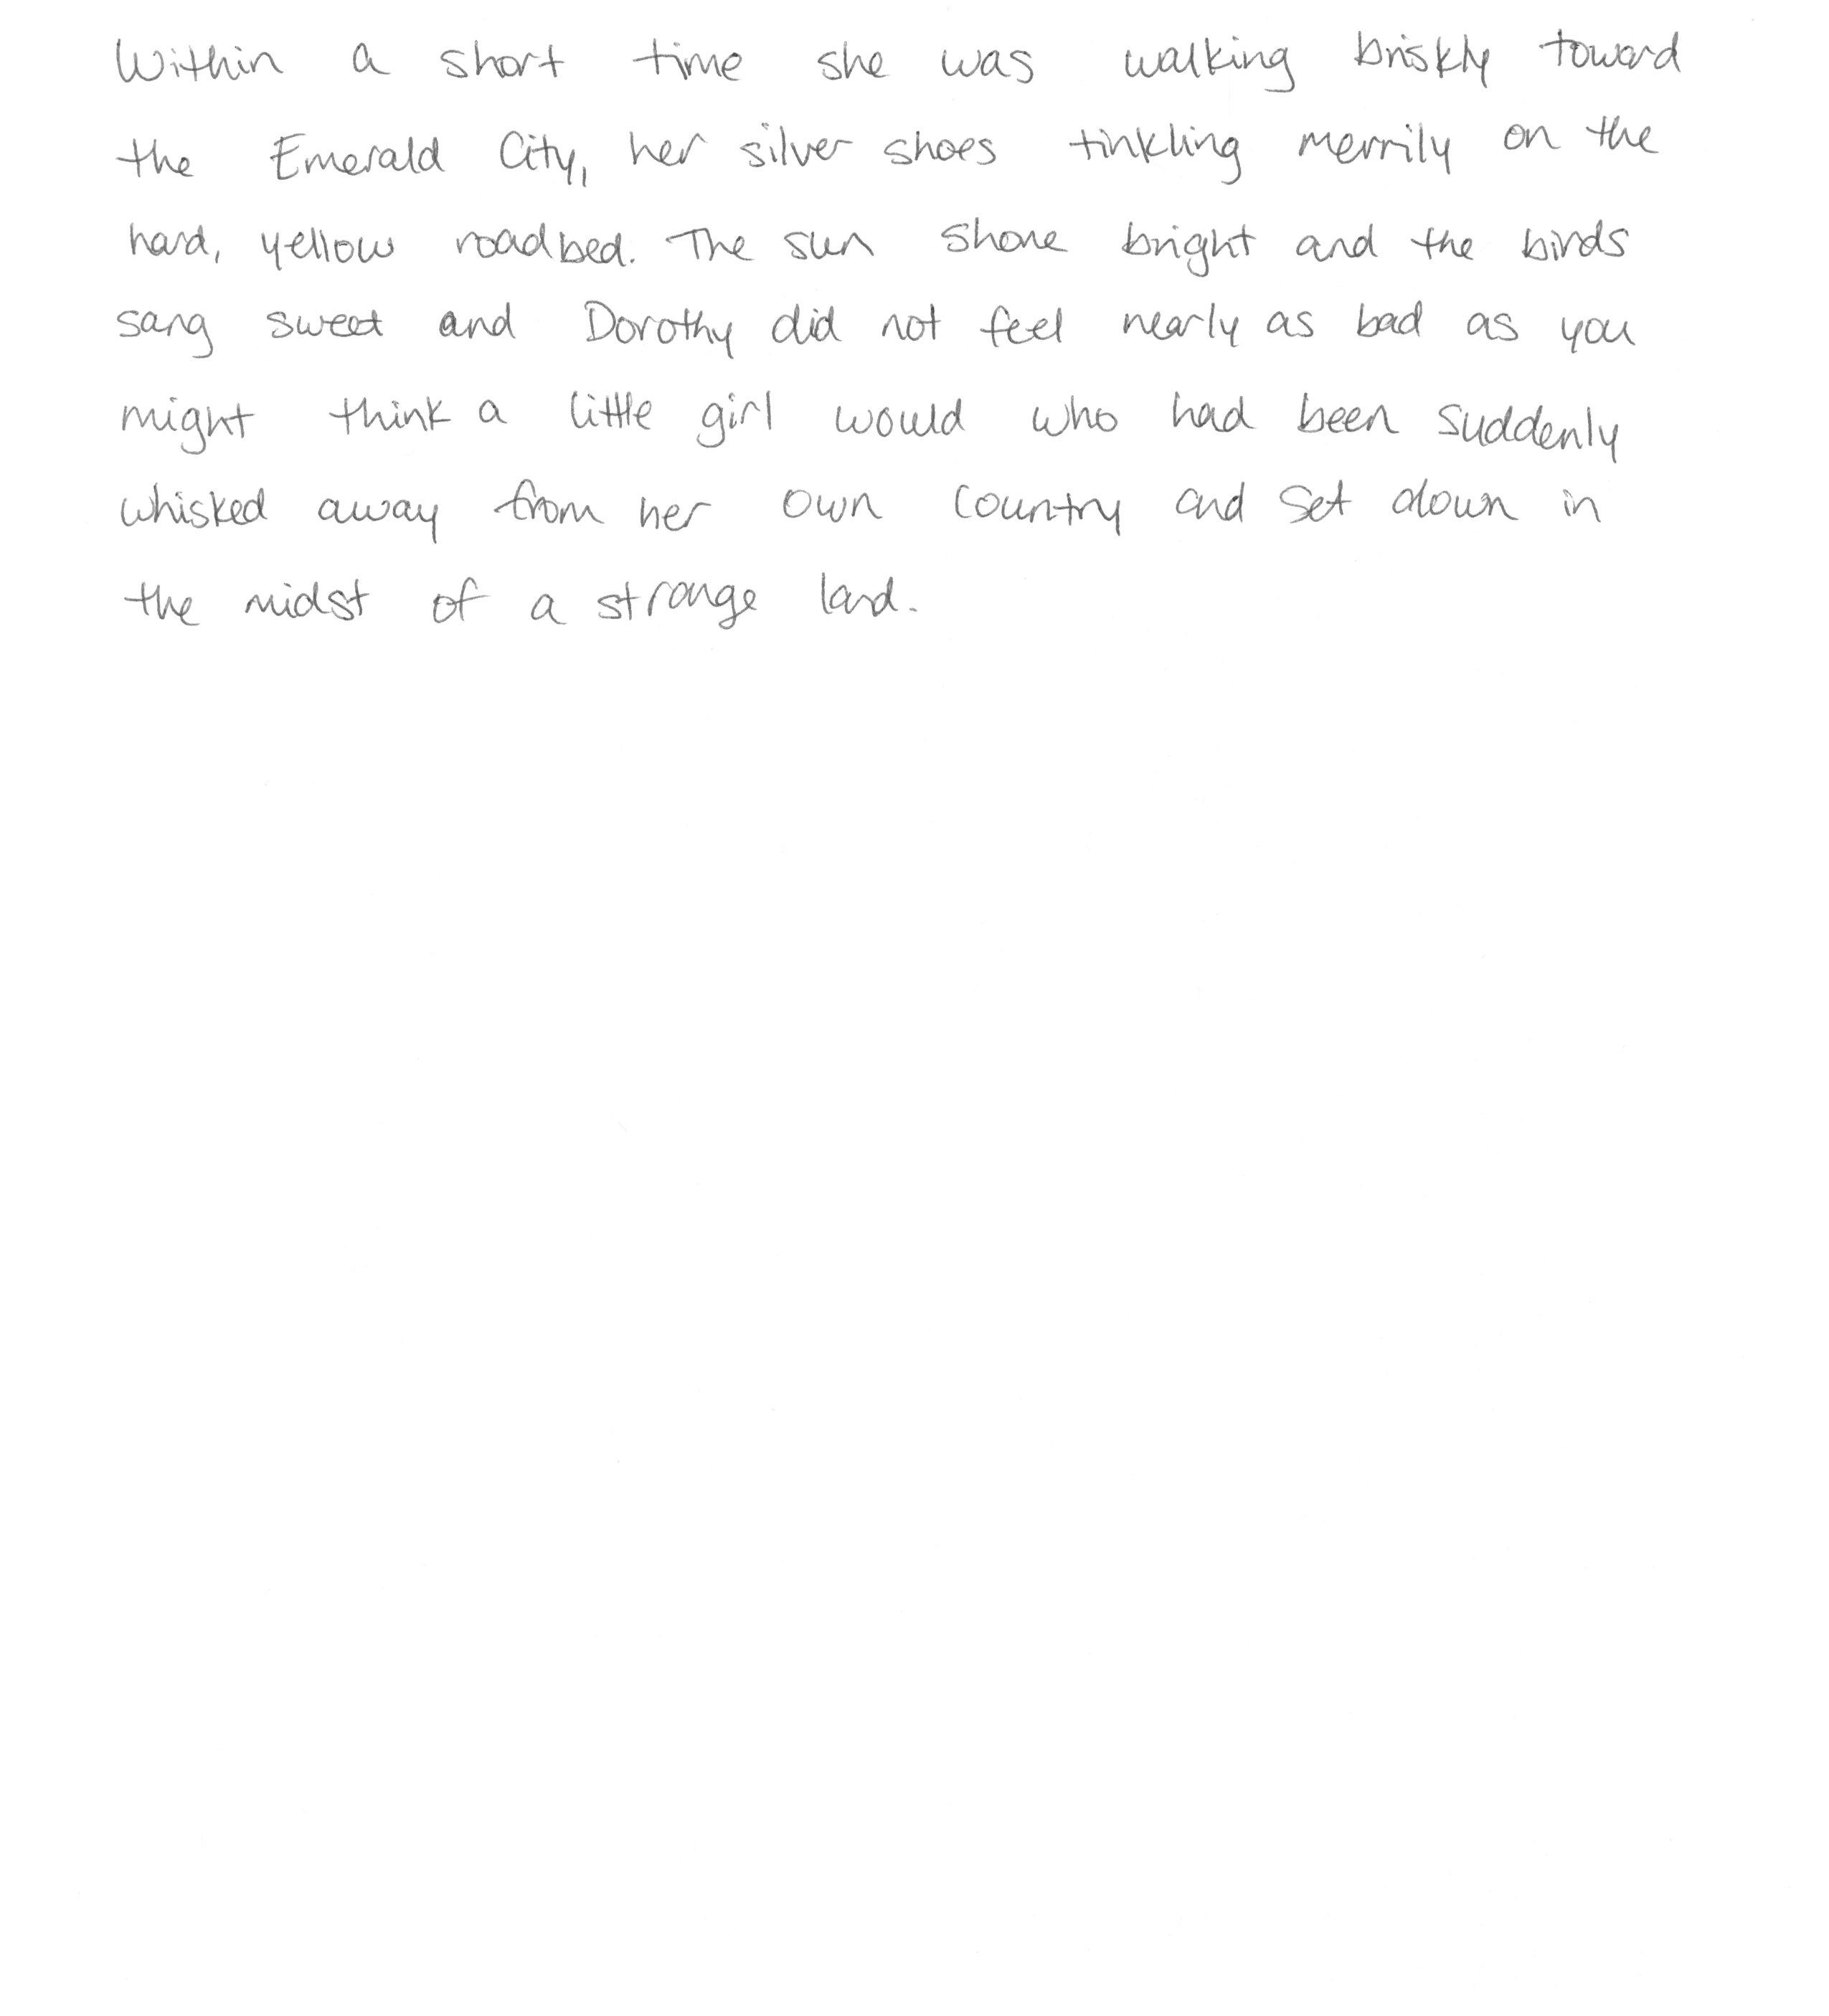 Within a short time she was walking briskly toward
the Emerald City, her silver shoes tinkling merrily on the
hard, yellow roadbed. The sun shone bright and the birds
sang sweet and Dorothy did not feel nearly as bad as you
might think a little girl would who had been suddenly
whisked away from her own country and set down in
the midst of a strange land.